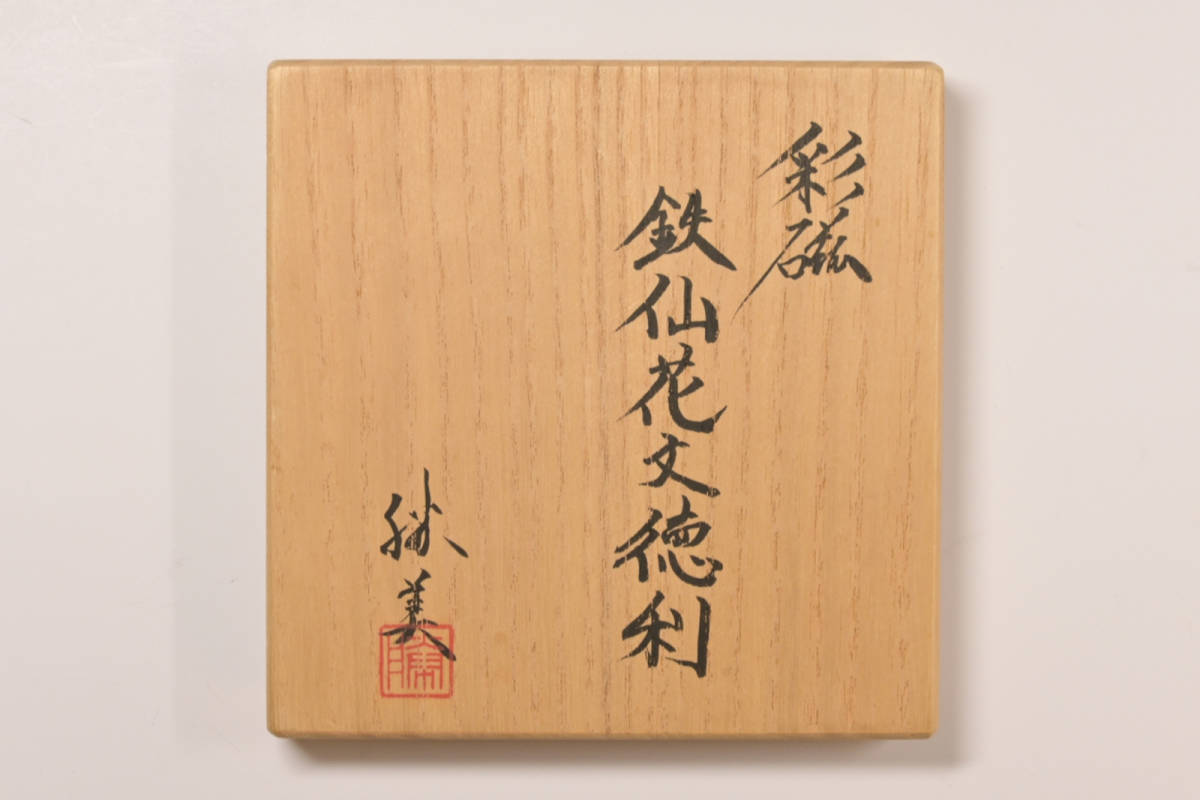 彩磁
鉄仙花文徳利
勝美